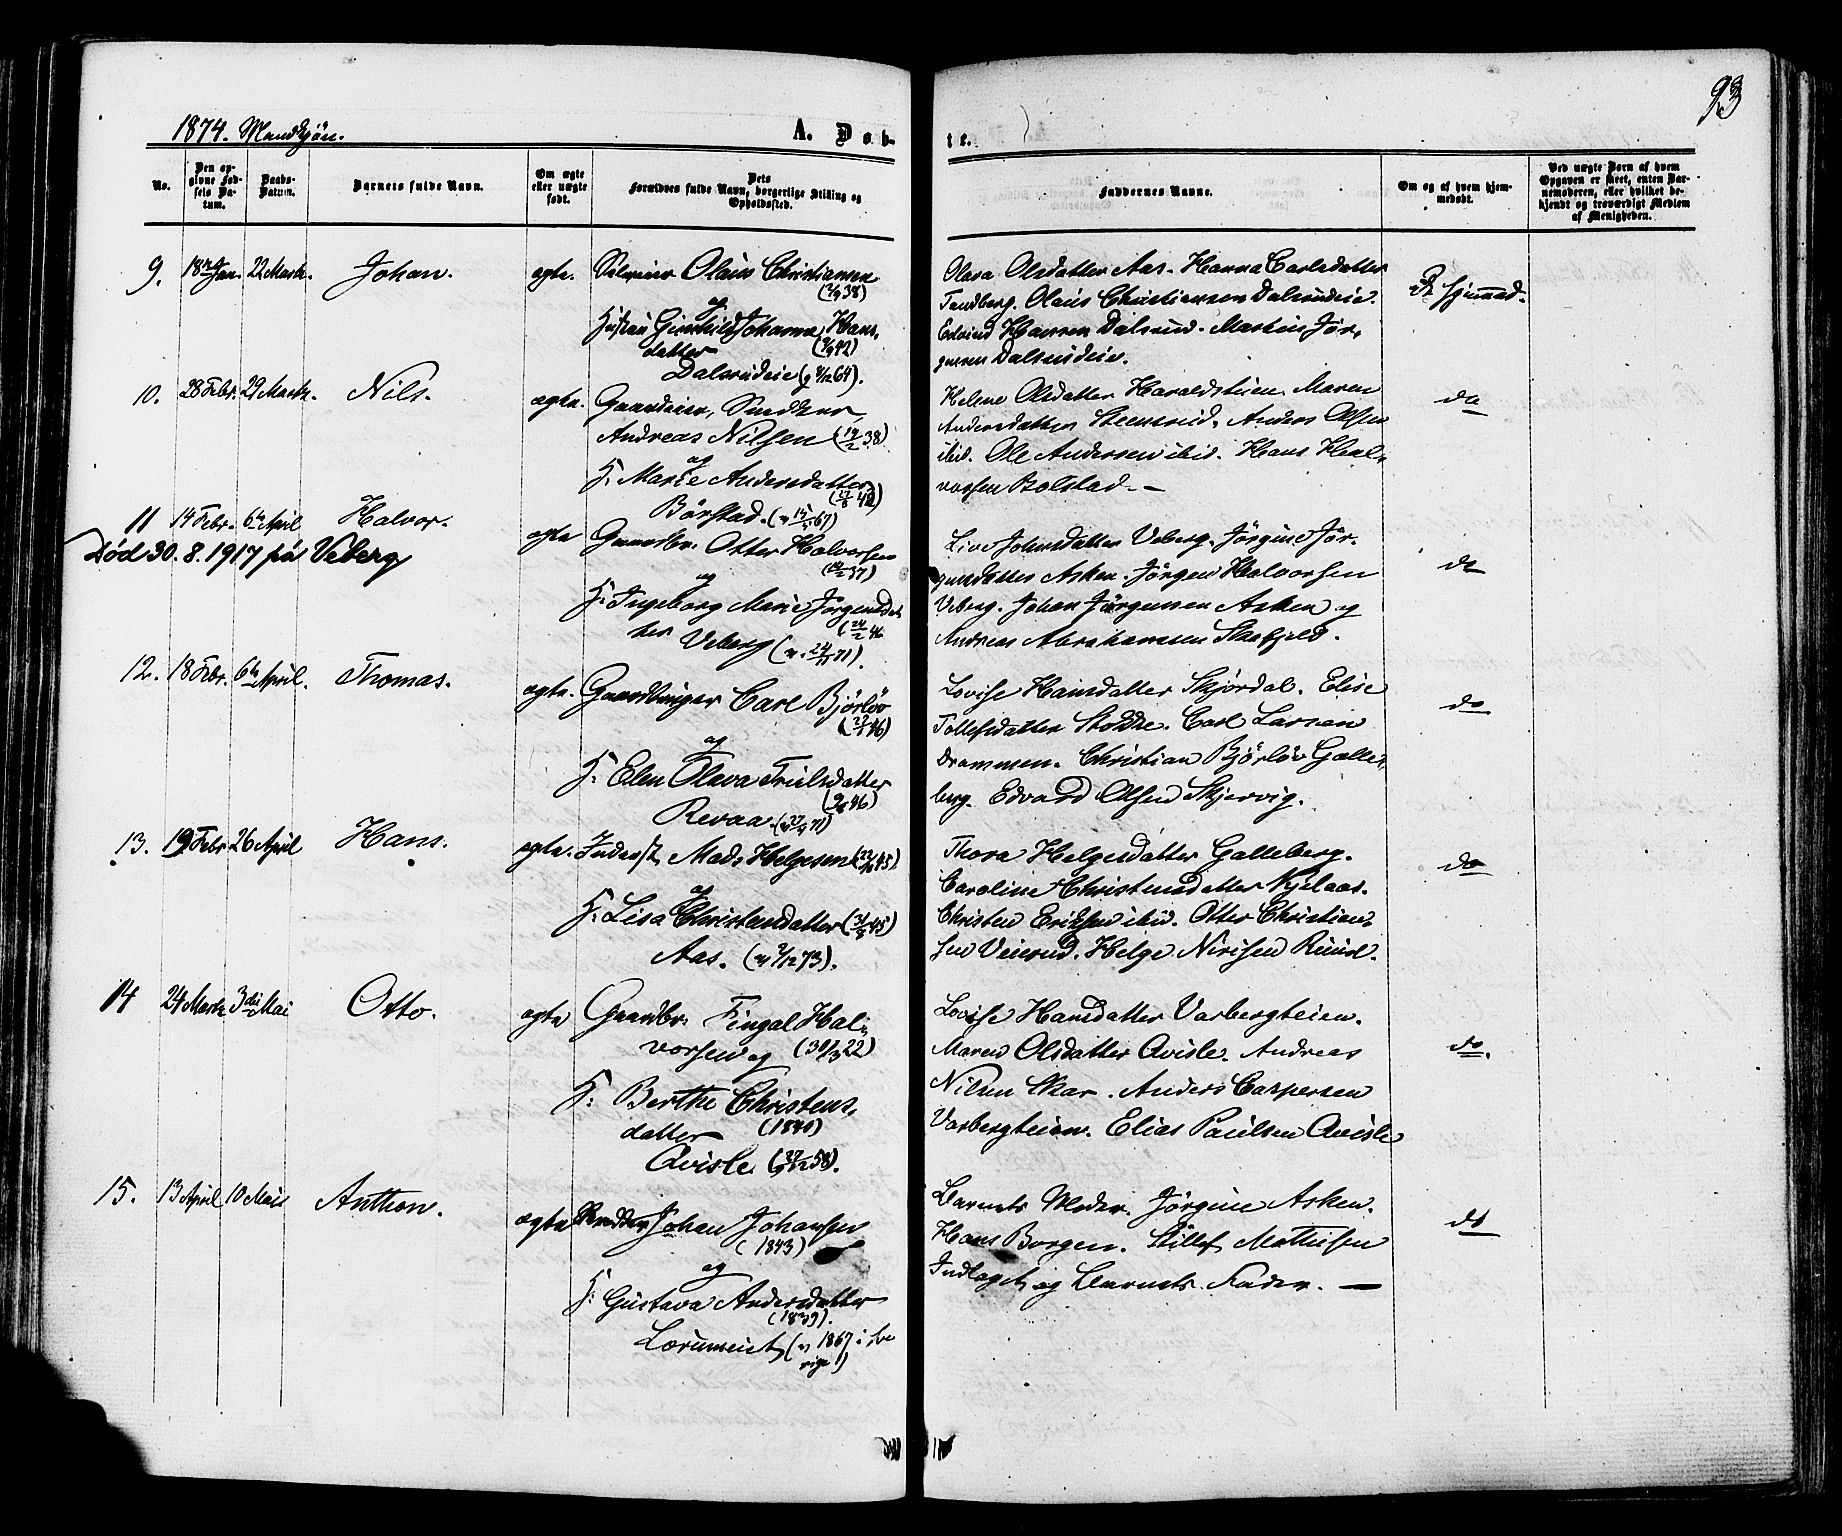 93
1874. Mandkjøn.
A. Døb-
te.
No.
Den op-
givne Fød-
sels Da-
tum.
Daabs-
Datum.
Barnets fulde Navn.
Om ægte
eller uægte
født.
Dets
Forældres fulde Navn, borgerlige Stilling og
Opholdssted.
Faddernes Navne.
Om og af hvem hjem-
medøbt.
Ved uægte Børn af hvem
Opgaven er skeet, enten Bar-
nemoderen, eller hvilket be-
kjendt og troværdigt Medlem
af Menigheden.
9. 18 Jan. 22 Marts. Johan. ægte. Selveier Olaus Christiansen
(38)
og
Hustru Gunhild Johanna Hans-
datter (42)
Dalsrudeie (64).
Olava Olsdatter Aas. Hanna Carlsdatter
Tandberg. Olaus Christiansen Dalsrudeie.
Edvind Hansen Dalsrud. Martin Jør-
gensen Dalsrudeie.
Ei hjemmed.
10. 28 Febr. 29 Marts. Nils. ægte. Gaardeier, Snedker
Andreas Nilsen (19/2 38)
og
H. Marie Andersdatter
Børstad. (67)
Helene Olsdatter Haraldstuen. Maren
Andersdatter Steensrud. Anders Olsen
ibid. Ole Andersen ibid. Hans Hal-
vorsen Bolstad. —
do
11 14 Febr. 6te April Halvor. ægte Gaardbr. Otter Halvorsen
(37)
og
H. Ingeborg Marie Jørgensdat-
ter (24/2 46
Veberg (24/11 71).
Død 30.8.1917 på Veberg
Live Johnsdatter Veberg. Jørgine Jør-
gensdatter Asken. Jørgen Halvorsen
Veberg. Johan Jørgensen Asken og
Andreas Abrahamsen Skafjeld.
do
12. 18 Febr. 6te April. Thomas. ægte. Gaardbruger Carl Bjørløv
(46)
og
H. Elen Olava Trulsdatter
(46)
Revaa. (71)
Lovise Hansdatter Skjørdal. Elise
Tollefsdatter Stokke. Carl Larsen
Drammen. Christian Bjørløv Galle-
berg. Edvard Olsen Skjervig.
do
13. 19 Febr 26 April Hans. ægte. Inderst Mads Helgesen (45)
og
H. Lisa Christensdatter (45)
Aas. (7/12 73).
Thora Helgesdatter Galleberg.
Caroline Christensdatter Kjelaas.
Christen Eriksen ibid. Otter Christian-
sen Veierud. Helge Nirisen Ruud.
do
14 24 Marts 3die Mai Otto. ægte Gaardbr. Fingal Hal-
vorsen og (30/3 22)
H. Berthe Christens-
datter (1840)
Qvisle (27/12 58).
Lovise Hansdatter Varbergteien.
Maren Olsdatter Qvisle. Andreas
Nilsen Skar. Anders Caspersen
Varbergteien. Elias Paulsen Qvisle
do.
15. 13 April 10 Mai Anthon. ægte Johan Johansen
(1843)
og
H. Gustava Andersdatter
(1839).
(1867 i Sve-
rige)
Barnets Moder. Jørgine Asken.
Hans Borgen. Mathisen
Indlaget og Barnets Fader. —
do